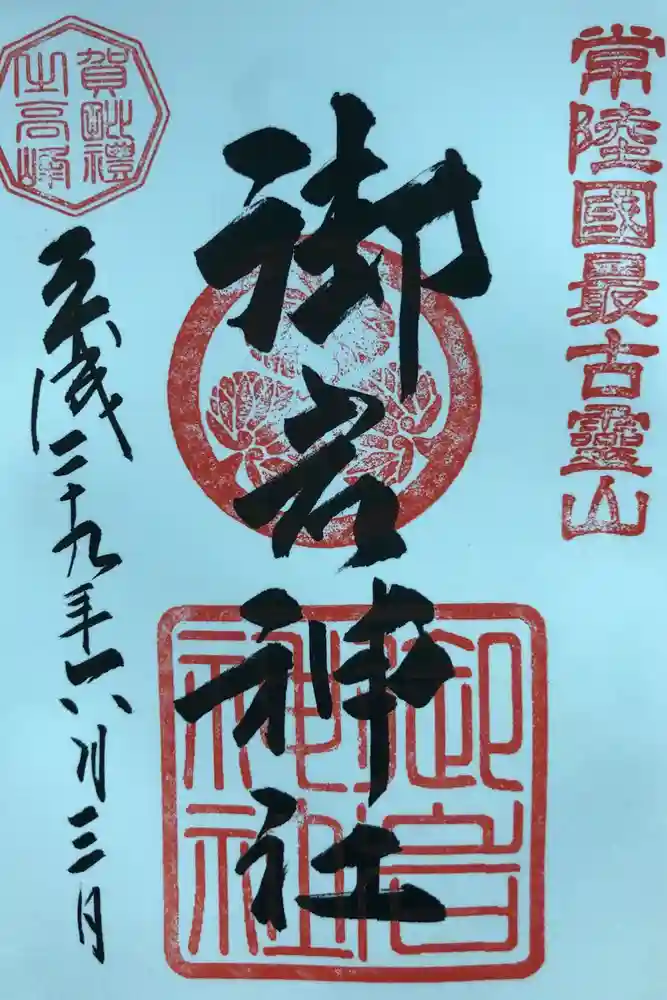 常陸國最古靈山
御岩神社
御岩
神社
賀毗禮
之高峰
平成二十九年六月三日